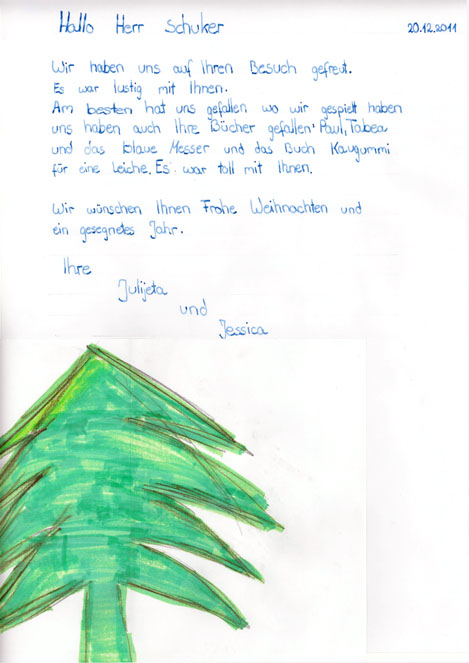 Hallo Herr Schuker 20.12.2011
Wir haben uns auf Ihren Besuch gefreut.
Es war lustig mit Ihnen.
Am besten hat uns gefallen wo wir gespielt haben
uns haben auch Ihre Bücher gefallen' Paul, Tabea
und das blaue Messer und das Buch Kaugummi
für eine Leiche. Es war toll mit Ihnen.
Wir wünschen Ihnen Frohe Weihnachten und
ein gesegnetes Jahr.
Ihre
Julijeta
und
Jessica